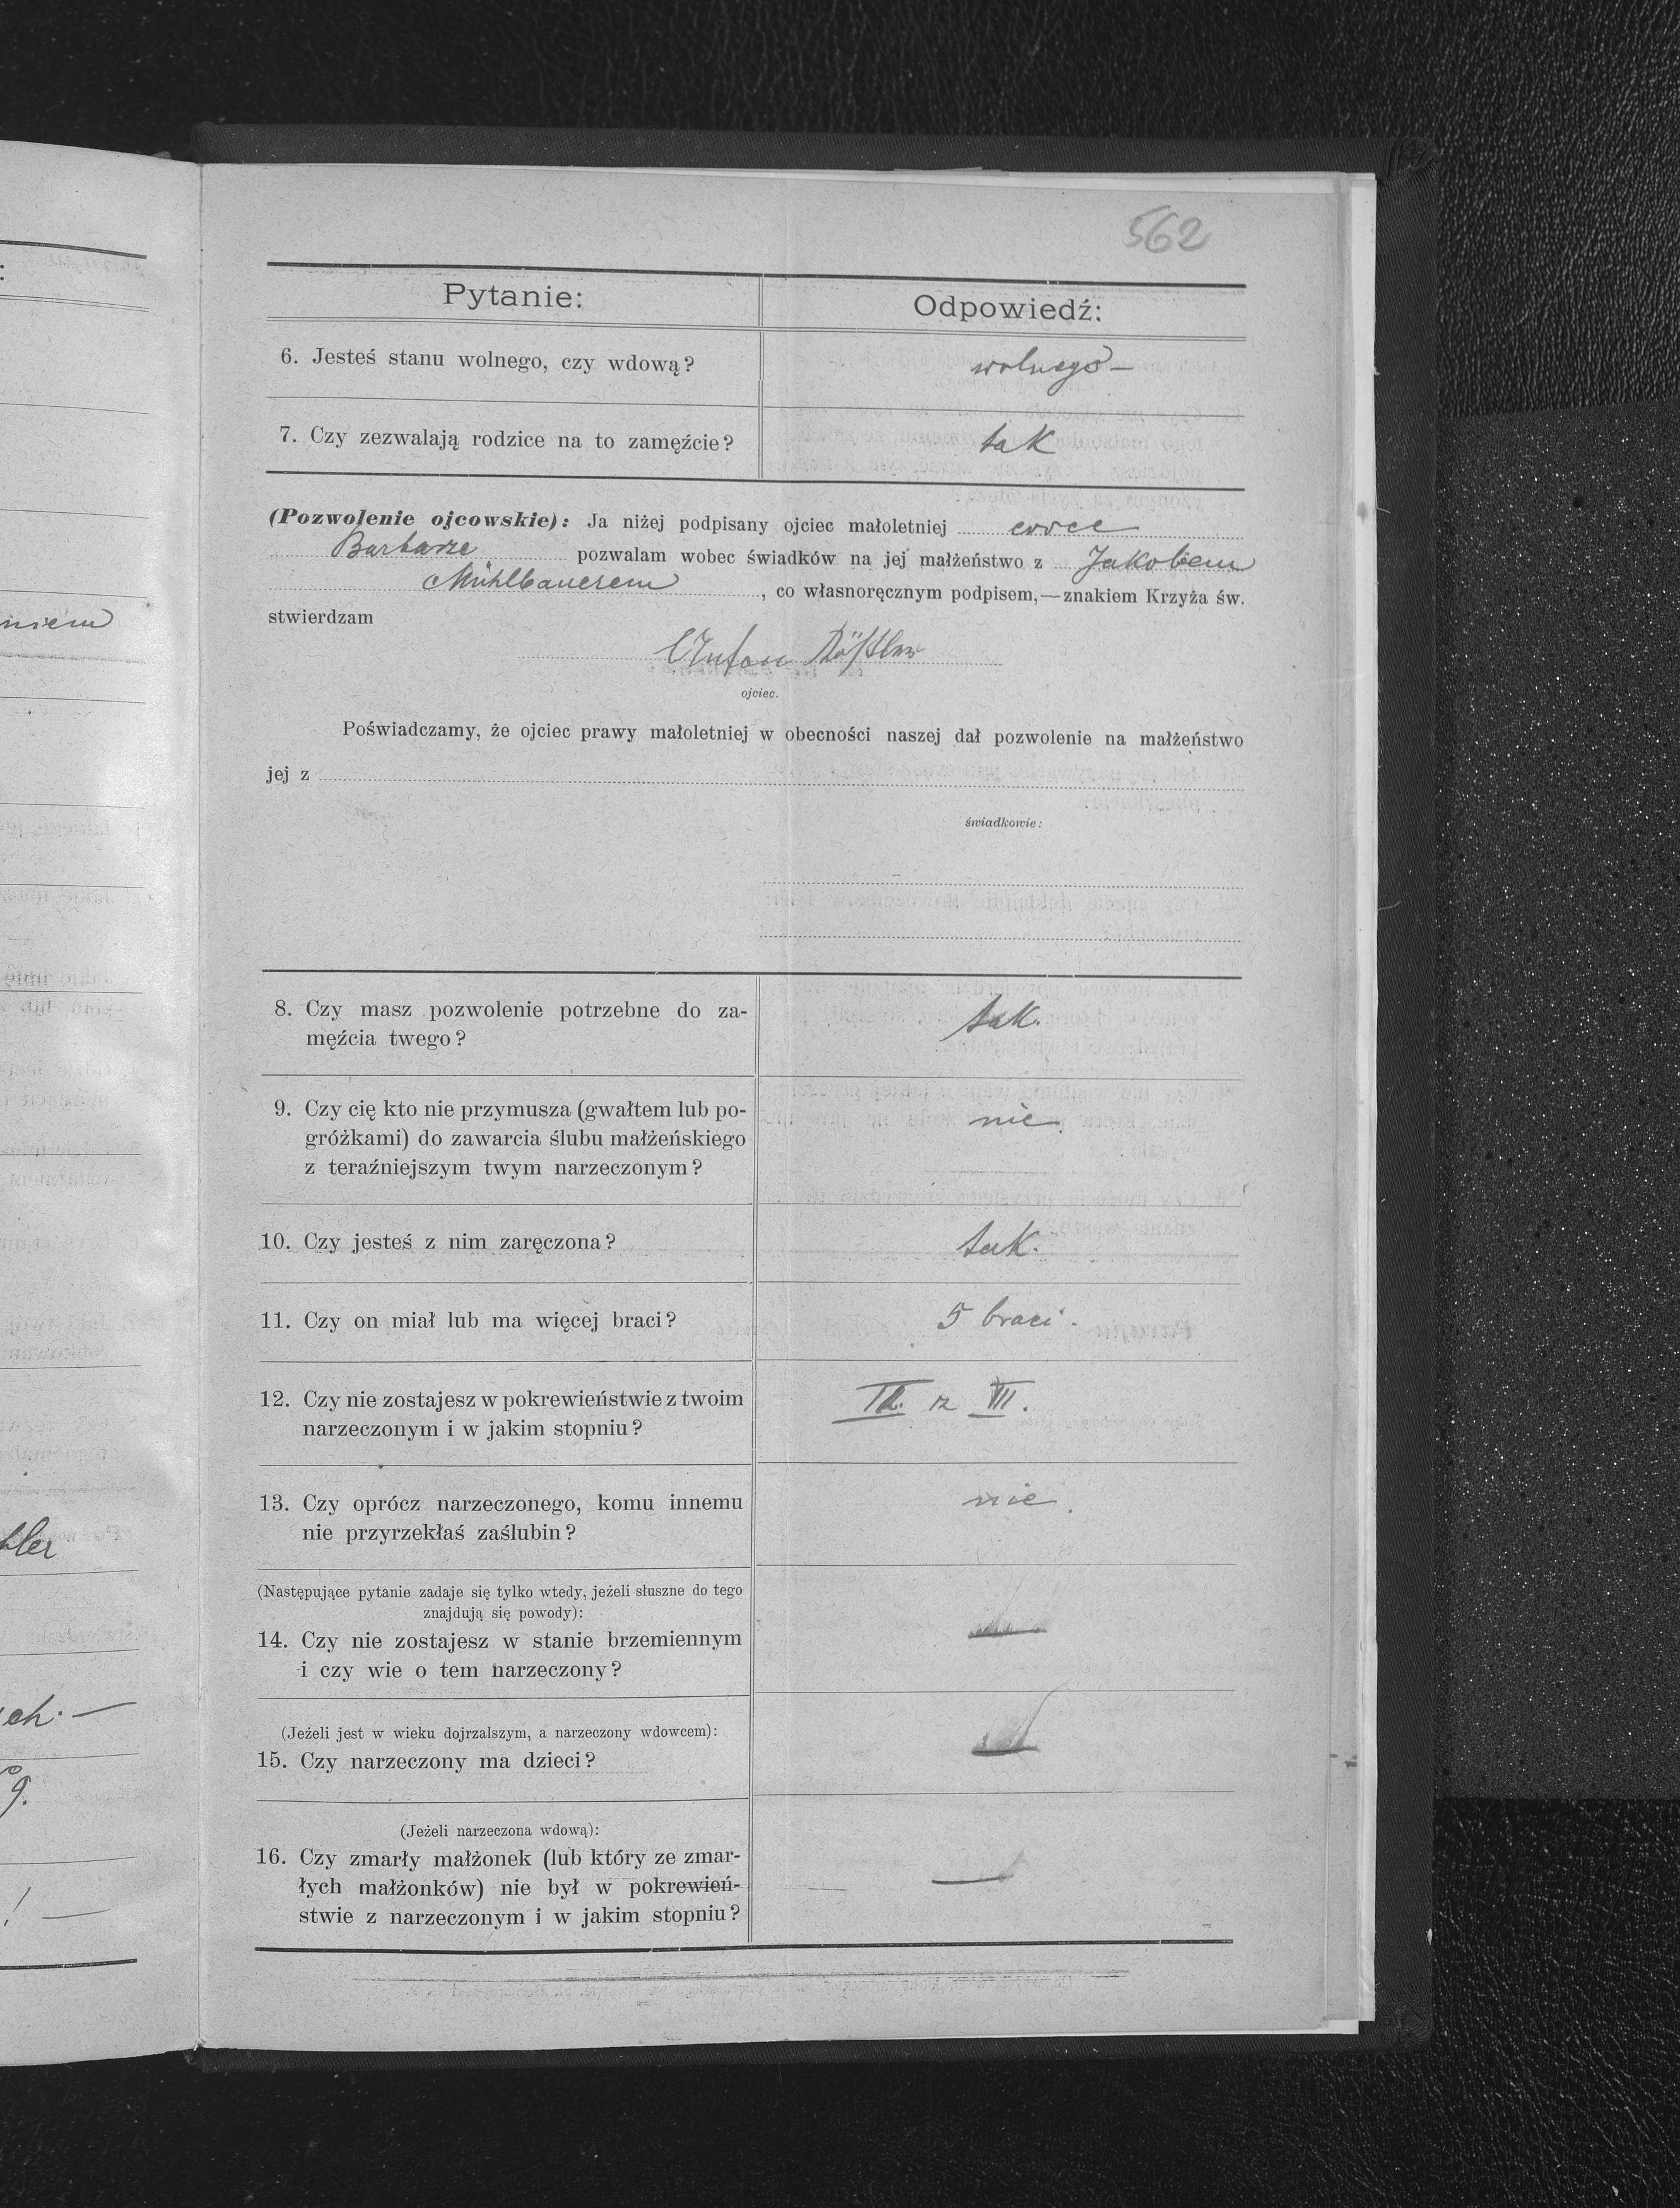 562
Pytanie:
Odpowiedź:
6. Jesteś stanu wolnego, czy wdową?
wolnego —
7. Czy zezwalają rodzice na to zamęźcie?
tak
(Pozwolenie ojcowskie): Ja niżej podpisany ojciec małoletniej
Barbarze pozwalam wobec świadków na jej małżeństwo z Jakobem
Mühlbauerem, co własnoręcznym podpisem,—znakiem Krzyża św.
stwierdzam
Anton
ojciec.
Poświadczamy, że ojciec prawy małoletniej w obecności naszej dał pozwolenie na małżeństwo
jej z
świadkowie:
8. Czy masz pozwolenie potrzebne do za-
męźcia twego?
tak.
9. Czy cię kto nie przymusza (gwałtem lub po-
gróżkami) do zawarcia ślubu małżeńskiego
z teraźniejszym twym narzeczonym?
nie.
10. Czy jesteś z nim zaręczona?
tak.
11. Czy on miał lub ma więcej braci?
5 braci.
12. Czy nie zostajesz w pokrewieństwie z twoim
narzeczonym i w jakim stopniu?
z III.
13. Czy oprócz narzeczonego, komu innemu
nie przyrzekłaś zaślubin?
nie.
(Następujące pytanie zadaje się tylko wtedy, jeżeli słuszne do tego
znajdują się powody):
14. Czy nie zostajesz w stanie brzemiennym
i czy wie o tem narzeczony?
(Jeżeli jest w wieku dojrzalszym, a narzeczony wdowcem):
15. Czy narzeczony ma dzieci?
(Jeżeli narzeczona wdową):
16. Czy zmarły małżonek (lub który ze zmar-
łych małżonków) nie był w pokrewień-
stwie z narzeczonym i w jakim stopniu?